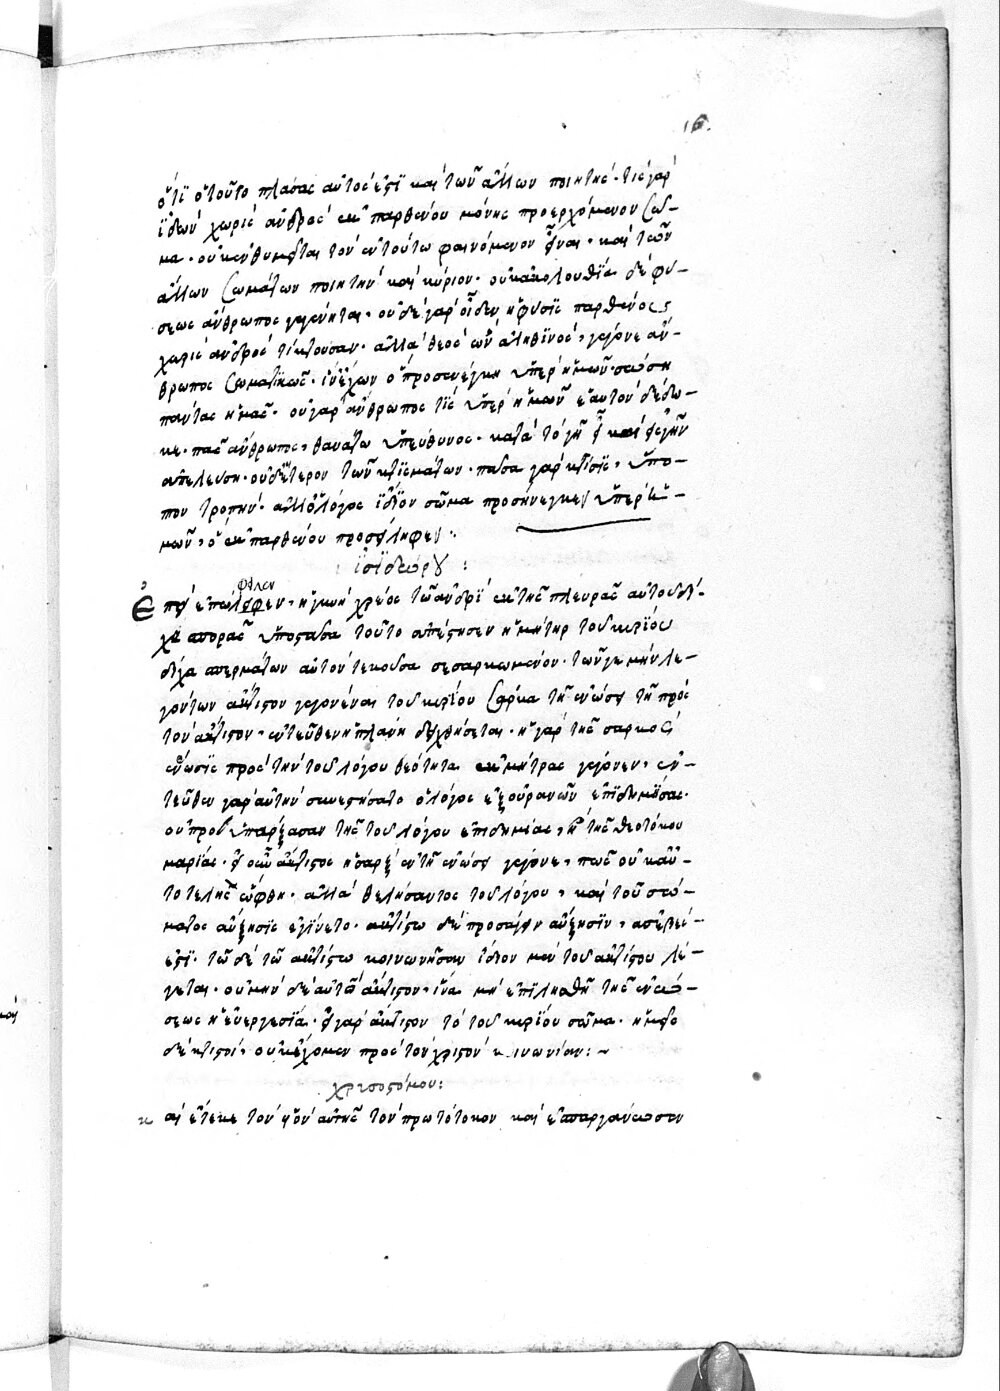 16.
ὅτι ὁ τοῦτο πλάσας αὐτός ἐστι καὶ τῶν ἄλλων ποιητής· τίς γὰρ
ἰδὼν χωρὶς ἀνδρὸς ἐκ παρθένου μόνης προερχόμενον σῶ-
μα· οὐκ ἐνθυμεῖται τὸν ἐν τούτω φαινόμενον εἶναι· καὶ τῶν
ἄλλων σωμάτων ποιητὴν καὶ κύριον· οὐκ ἀκολουθία δὲ φύ-
σεως ἄνθρωπος γεγένηται· οὐδὲ γὰρ οἶδεν ἡ φύσις παρθένους
χωρὶς ἀνδρὸς τίκτουσαν· ἀλλὰ θεὸς ὢν ἀληθινὸς, γέγονε ἄν-
θρωπος σωματικῶς· ἵν' ἔχων ὃ προσενέγκη ὑπὲρ ἡμῶν· σώση
πάντας ἡμᾶς· οὐ γὰρ ἄνθρωπός τις ὑπὲρ ἡμῶν ἑαυτὸν δέδω-
κε· πᾶς ἄνθρωπος, θανάτω ὑπεύθυνος· κατὰ τὸ γῆ εἶ καὶ εἰς γῆν
ἀπελεύση· οὐδ' ἕτερον τῶν κτισμάτων· πᾶσα γὰρ κτίσις, ὑπο-
που τροπὴν· ἀλλ' ὁ λόγος ἴδιον σῶμα προσήνεγκεν ὑπὲρ ἡ-
μῶν, ὃ ἐκ παρθένου προσείληφεν·
ἰσιδώρου:
φιλεν
Ἐπεὶ ἐπώφειλεν, ἡ γυνὴ χρέος τῶ ἀνδρὶ ἐκ τῆς πλευρᾶς αὐτοῦ δί-
χα σπορᾶς ὑποστᾶσα τοῦτο ἀπέτισεν ἡ μήτηρ τοῦ κυρίου
δίχα σπερμάτων αὐτὸν τεκοῦσα σεσαρκωμένον· τῶν γε μὴν λε-
γόντων ἄκτιστον γεγονέναι τοῦ κυρίου σάρκα τῆ ἑνώσει τῆ πρὸς
τὸν ἄκτιστον· ἐντεῦθεν ἡ πλάνη δειχθήσεται· ἡ γὰρ τῆς σαρκὸς
ἕνωσις πρὸς τὴν τοῦ λόγου θεότητα ἐκ μήτρας γέγονεν, ἐν-
τεῦθεν γὰρ αὐτὴν συνεστήσατο ὁ λόγος ἐξ οὐρανῶν ἐπιδημήσας·
οὐ προϋπάρξασαν τῆς τοῦ λόγου ἐπιδημίας, ἢ τῆς θεοτόκου
μαρίας· εἰ οὖν ἄκτιστος ἡ σὰρξ ἐν τῆ ἑνώσει γέγονε, πῶς οὐκ αὐ-
τοτελὴς ὤφθη· ἀλλὰ θελήσαντος τοῦ λόγου, καὶ τοῦ σώ-
ματος αὔξησις ἐγίνετο· ἀκτίστω δὲ προσάγειν αὔξησιν, ἀσεβές
ἐστι· τῶ δὲ τῶ ἀκτίστω κοινωνῆσαν ἴδιον μὲν τοῦ ἀκτίστου λέ-
γεται· οὐ μὴν δὲ αὐτὸ ἄκτιστον· ἵνα μὴ ἐπιλησθῆ τῆς ἑνώ-
σεως ἡ εὐεργεσία· εἰ γὰρ ἄκτιστον τὸ τοῦ κυρίου σῶμα· ἡμεῖς
δὲ κτιστοὶ, οὐκ ἔχομεν πρὸς τὸν χριστὸν κοινωνίαν:~
χρυσοστόμου:
καὶ ἔτεκε τὸν υἱὸν αὐτῆς τὸν πρωτότοκον καὶ ἐσπαργάνωσεν